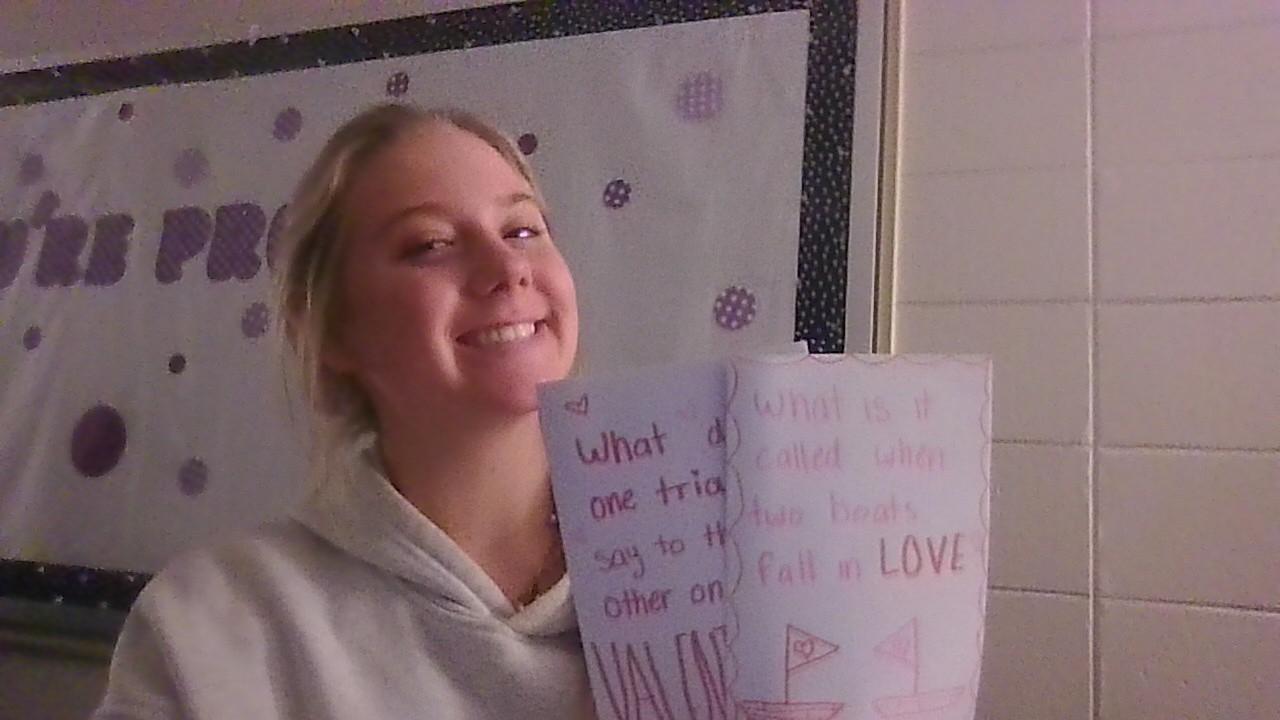 'RE PRO
What d
one tria
say to th
other on
VALEN
What is it
called when
two boats
fall in LOVE